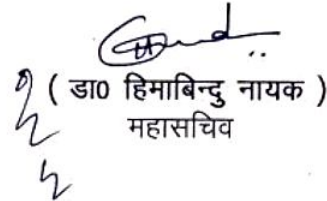 ( डा0 हिमाबिन्दु नायक )
महासचिव